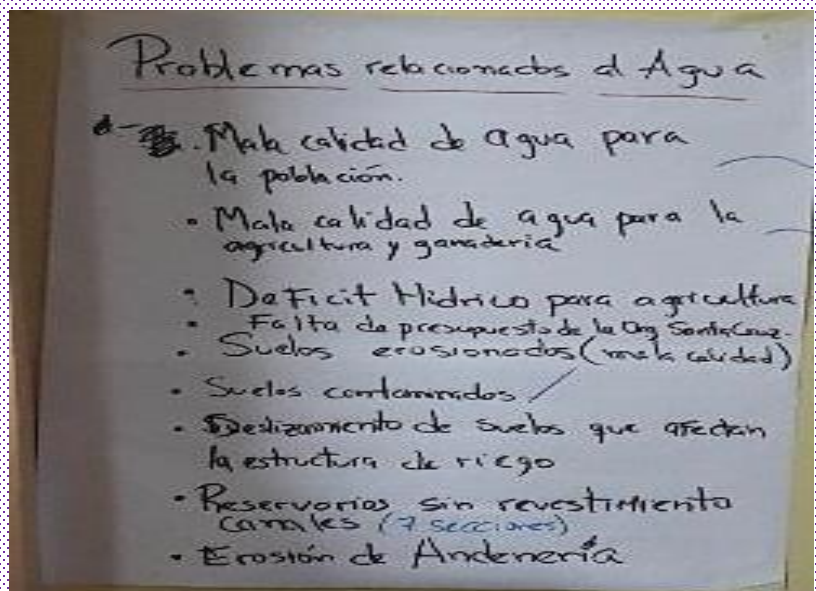 Problemas relacionados al Agua
. Mala calidad de agua para
la población.
• Mala calidad de agua para la
agricultura y ganaderia
• Deficit Hídrico para agricultura
• Falta de presupuesto de la Org Santa Cruz.
• Suelos erosionados (mala calidad)
• Suelos contaminados
• Deslizamiento de suelos que afectan
la estructura de riego
• Reservorios sin revestimiento
canales (7 secciones)
• Erosión de Andenería